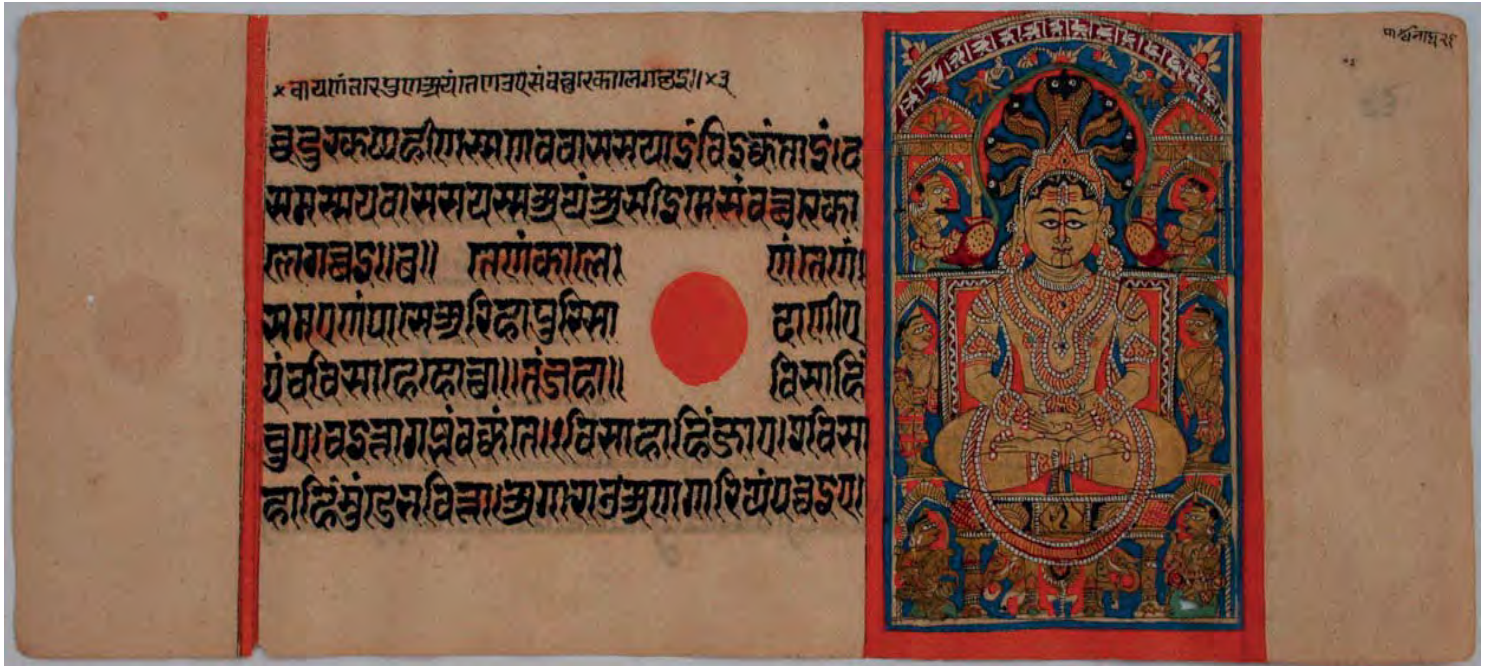 × वायणंतरेपुणअयंतेणउएसंवच्छरेकालेगच्छइ।। ×३
पार्श्वनाथ
व्वदुरकप्पहीणस्सणववाससयाइंविइक्कंताइं।द
समस्सयवाससयस्सअयंअसीइमेसंवच्छरेका
लेगच्छइ॥ब॥ तेणंकाले णंतेणं
समएणंपासेअरिहापुरिसा दाणीए
पंचविसाहेहोच्छा॥तंजहा॥ विसाहिं
चुए।चइत्तागप्भंवक्कंते।१विसाहाहिंजाए।२विसा
हाहिंमुंडेभवित्ता।अगाराउअणगारियंपव्वइए।